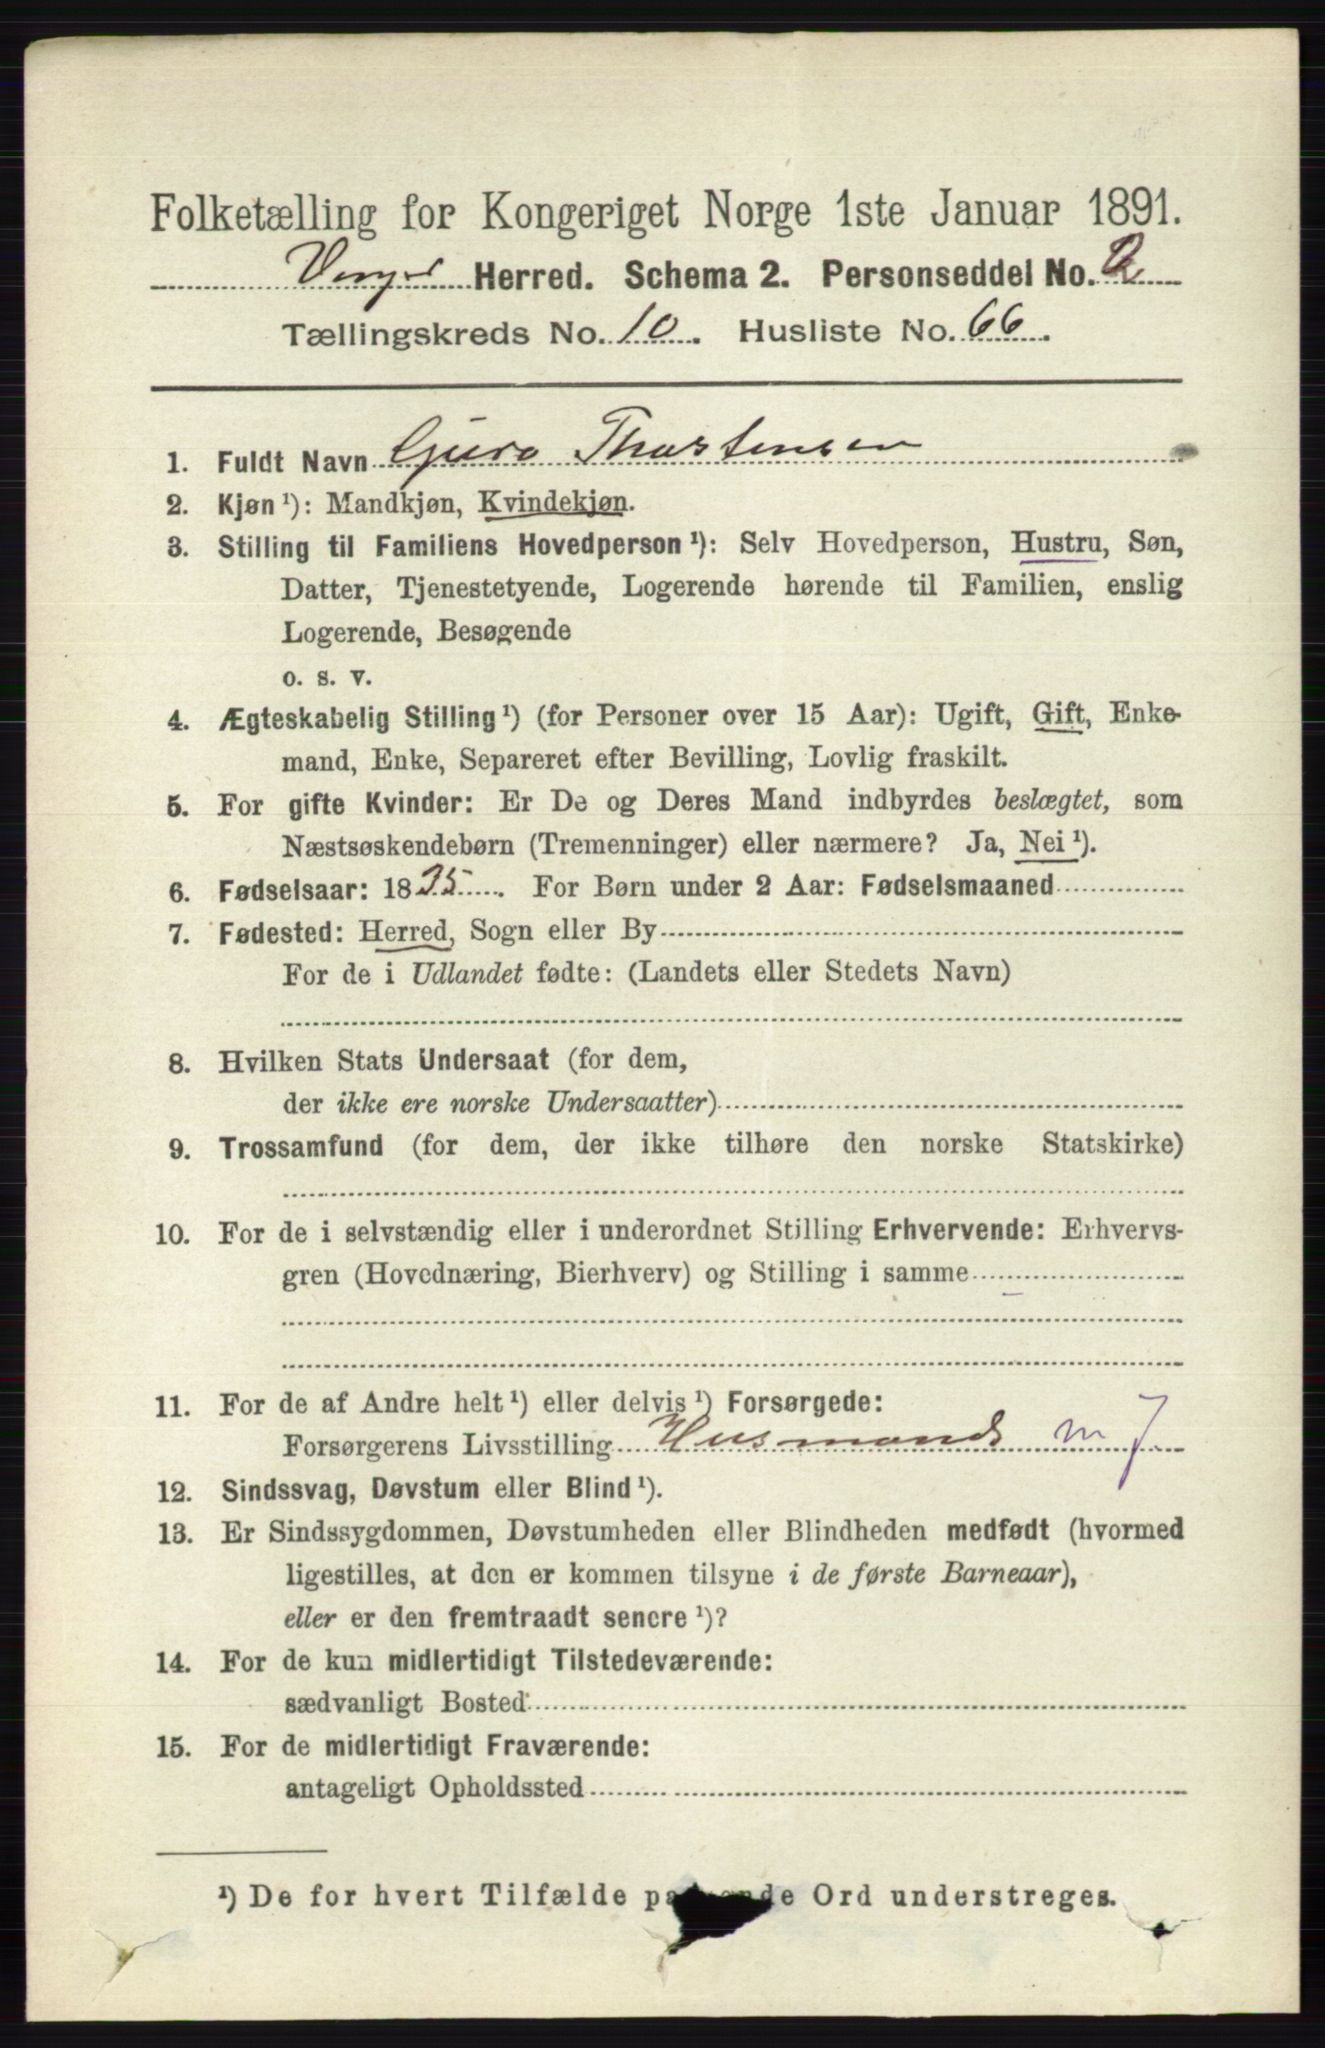 Folketælling for Kongeriget Norge 1ste Januar 1891.
Herred. Schema 2. Personseddel No. 2
Tællingskreds No. 10. Husliste No. 66.
1. Fuldt Navn Guro Thostensen
2. Kjøn ¹): Mandkjøn, Kvindekjøn.
3. Stilling til Familiens Hovedperson ¹): Selv Hovedperson, Hustru, Søn,
Datter, Tjenestetyende, Logerende hørende til Familien, enslig
Logerende, Besøgende
o. s. v.
4. Ægteskabelig Stilling ¹) (for Personer over 15 Aar): Ugift, Gift, Enke-
mand, Enke, Separeret efter Bevilling, Lovlig fraskilt.
5. For gifte Kvinder: Er De og Deres Mand indbyrdes beslægtet, som
Næstsøskendebørn (Tremenninger) eller nærmere? Ja, Nei ¹).
6. Fødselsaar: 1835. For Børn under 2 Aar: Fødselsmaaned
7. Fødested: Herred, Sogn eller By
For de i Udlandet fødte: (Landets eller Stedets Navn)
8. Hvilken Stats Undersaat (for dem,
der ikke ere norske Undersaatter)
9. Trossamfund (for dem, der ikke tilhøre den norske Statskirke)
10. For de i selvstændig eller i underordnet Stilling Erhvervende: Erhvervs-
gren (Hovednæring, Bierhverv) og Stilling i samme
11. For de af Andre helt ¹) eller delvis ¹) Forsørgede:
Forsørgerens Livsstilling Husmand m J.
12. Sindssvag, Døvstum eller Blind ¹).
13. Er Sindssygdommen, Døvstumheden eller Blindheden medfødt (hvormed
ligestilles, at den er kommen tilsyne i de første Barneaar),
eller er den fremtraadt senere ¹)?
14. For de kun midlertidigt Tilstedeværende:
sædvanligt Bosted
15. For de midlertidigt Fraværende:
antageligt Opholdssted
¹) De for hvert Tilfælde passende Ord understreges.